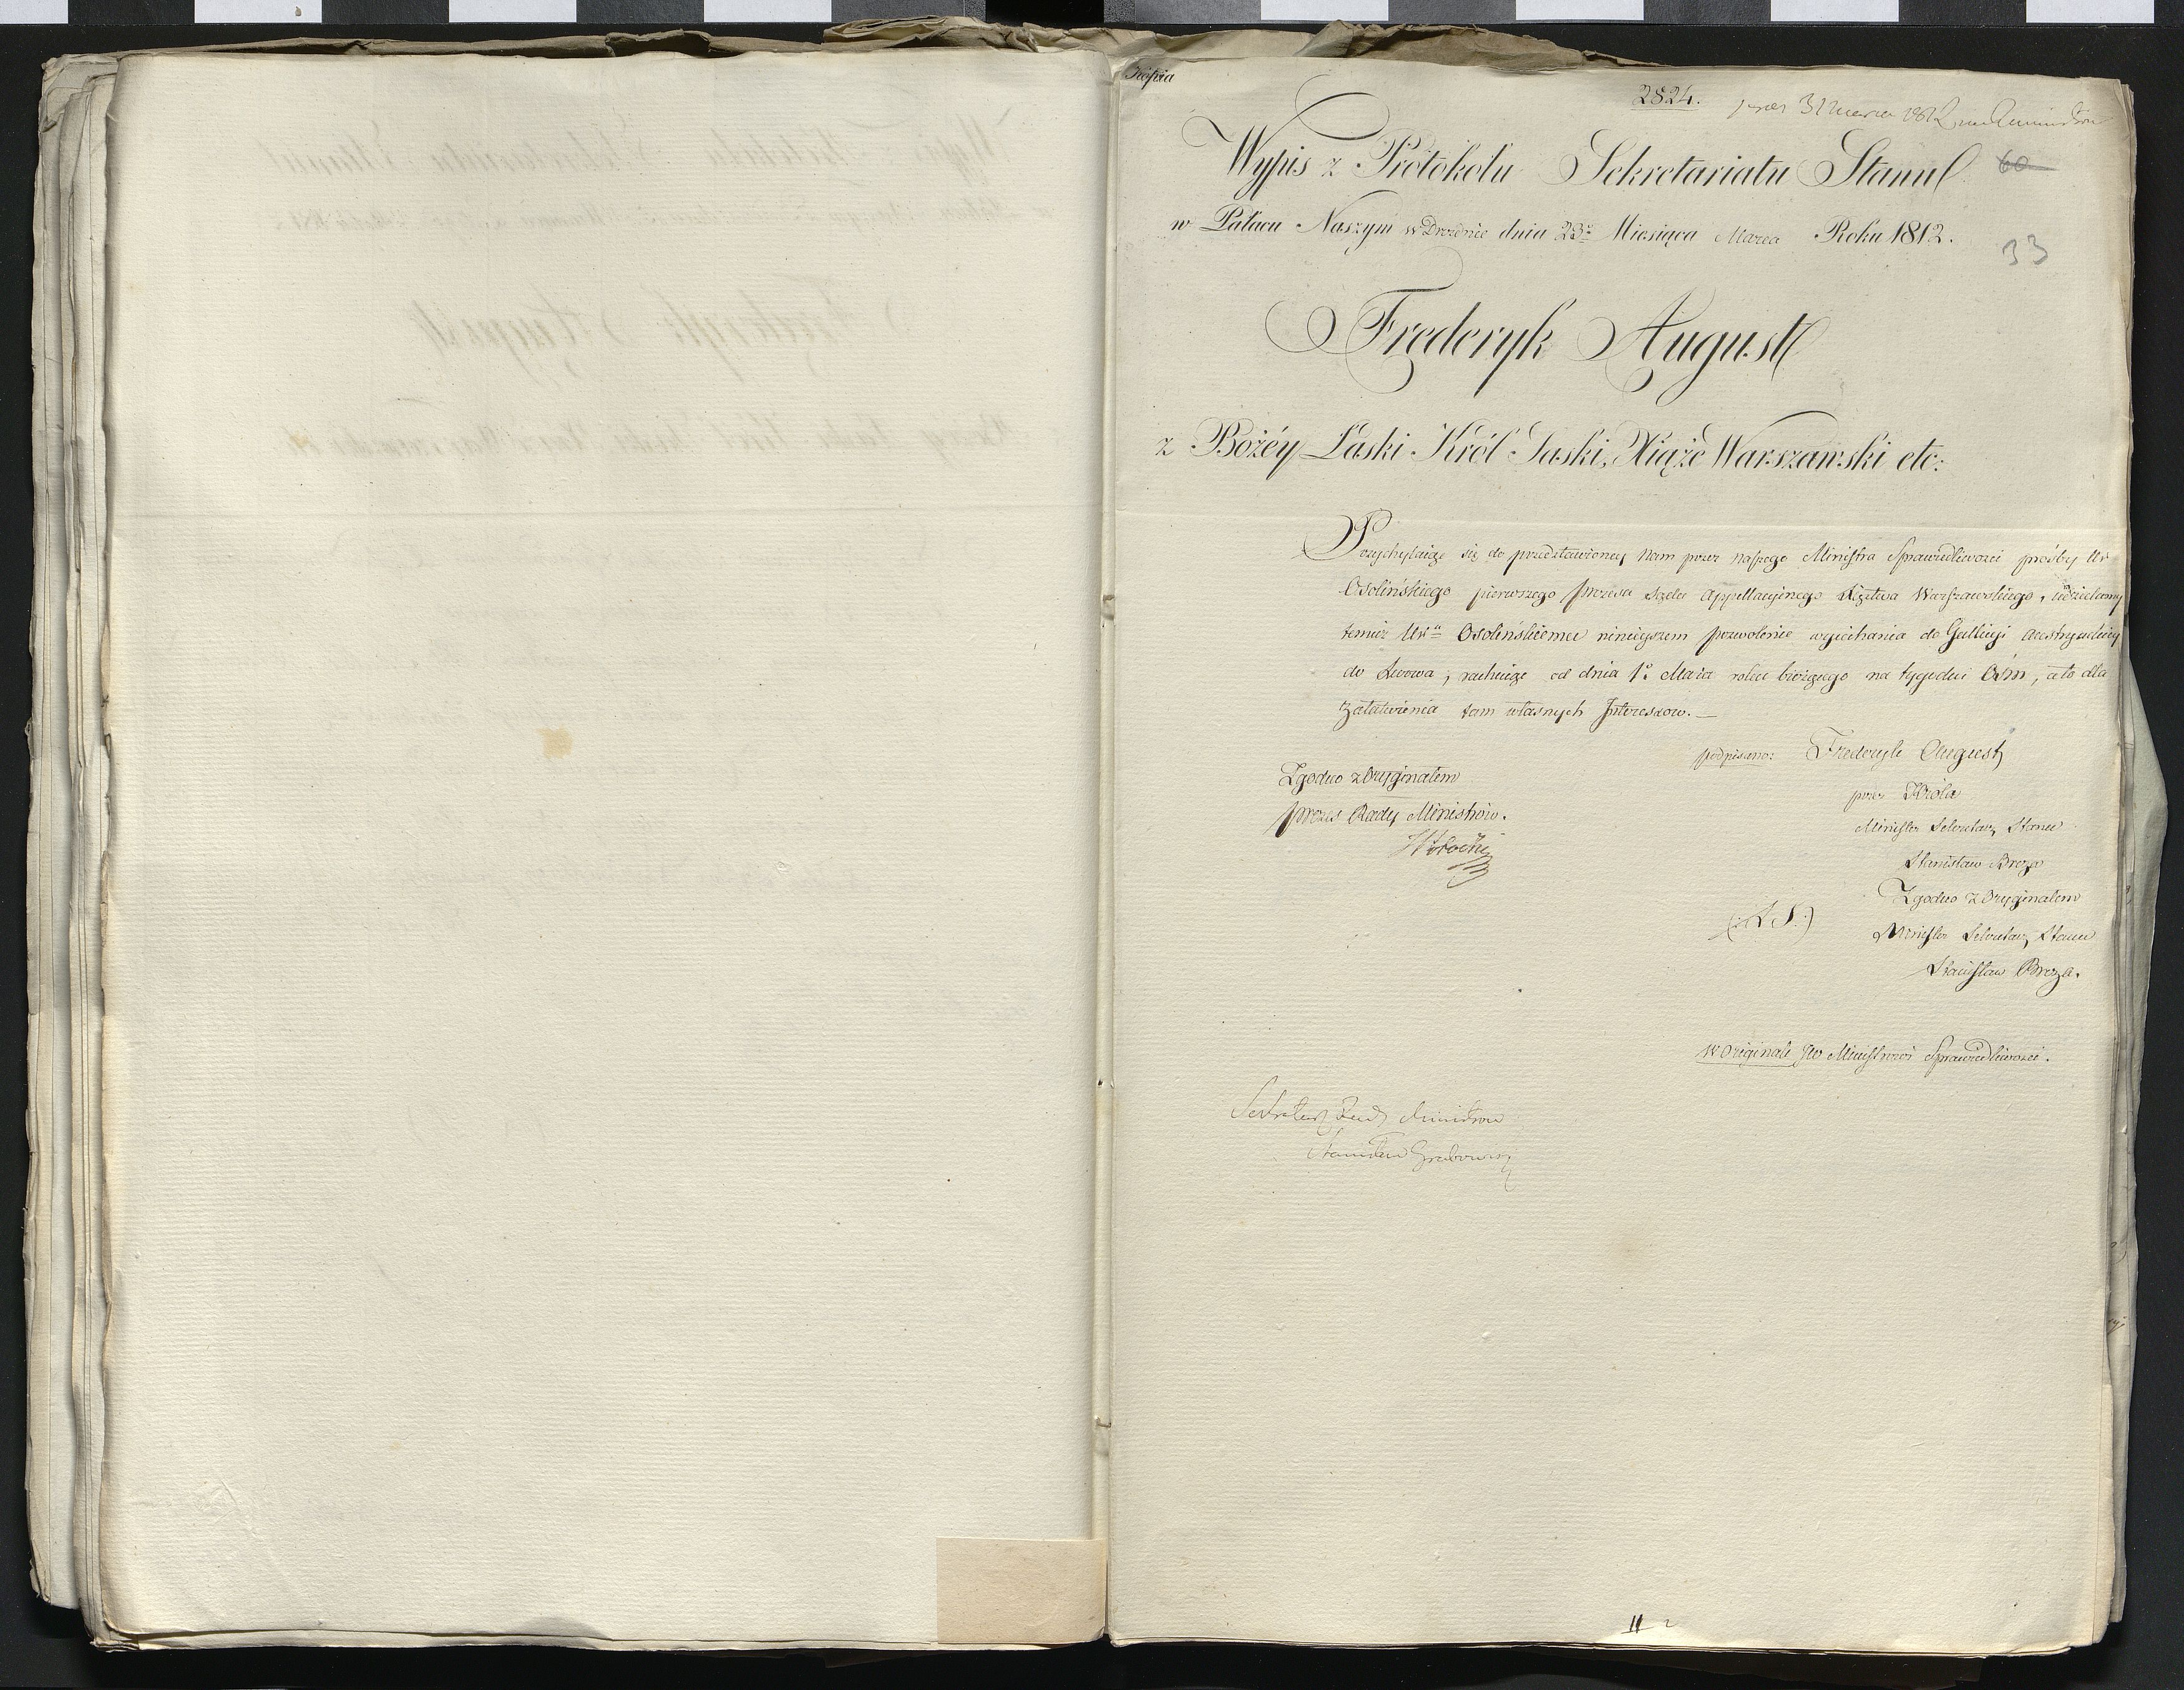 Kopia
2824.
31 Marca 1812
Wypis z Protokołu Sekretariatu Stanu
60
w Pałacu Naszym w Dreźnie dnia 23º Miesiąca Marca Roku 1812.
33
Frederyk August
z Bożéy Łaski Król Saski, Xiąże Warszawski etc:
Przychylaiąc się do przedstawioney Nam przez naszego Ministra Sprawiedliwości prośby Ur
Osolińskiego pierwszego prezesa Sądu Appellacyinego Xięstwa Warszawskiego, udzielamy
temuż Urº Osolińskiemu ninieyszem pozwolenie wyiechania do Gallicyi Austryackiey
do Lwowa, rachuiąc od dnia 1º Maia roku bieżącego na tygodni Ośm, a to dla
załatwienia tam własnych Interessow. —
podpisano: Frederyk August
przez Króla
Minister Sekretarz Stanu
Stanisław Breza
Zgodno z Oryginałem
prezes Rady Ministrów.
Zgodno z Oryginałem
(: L S :)
Minister Sekretarz Stanu
Stanisław Breza.
w Originale JW Ministrowi Sprawiedliwości.
Sekretarz Rady Ministrow
Stanisław Grabowski
11
2